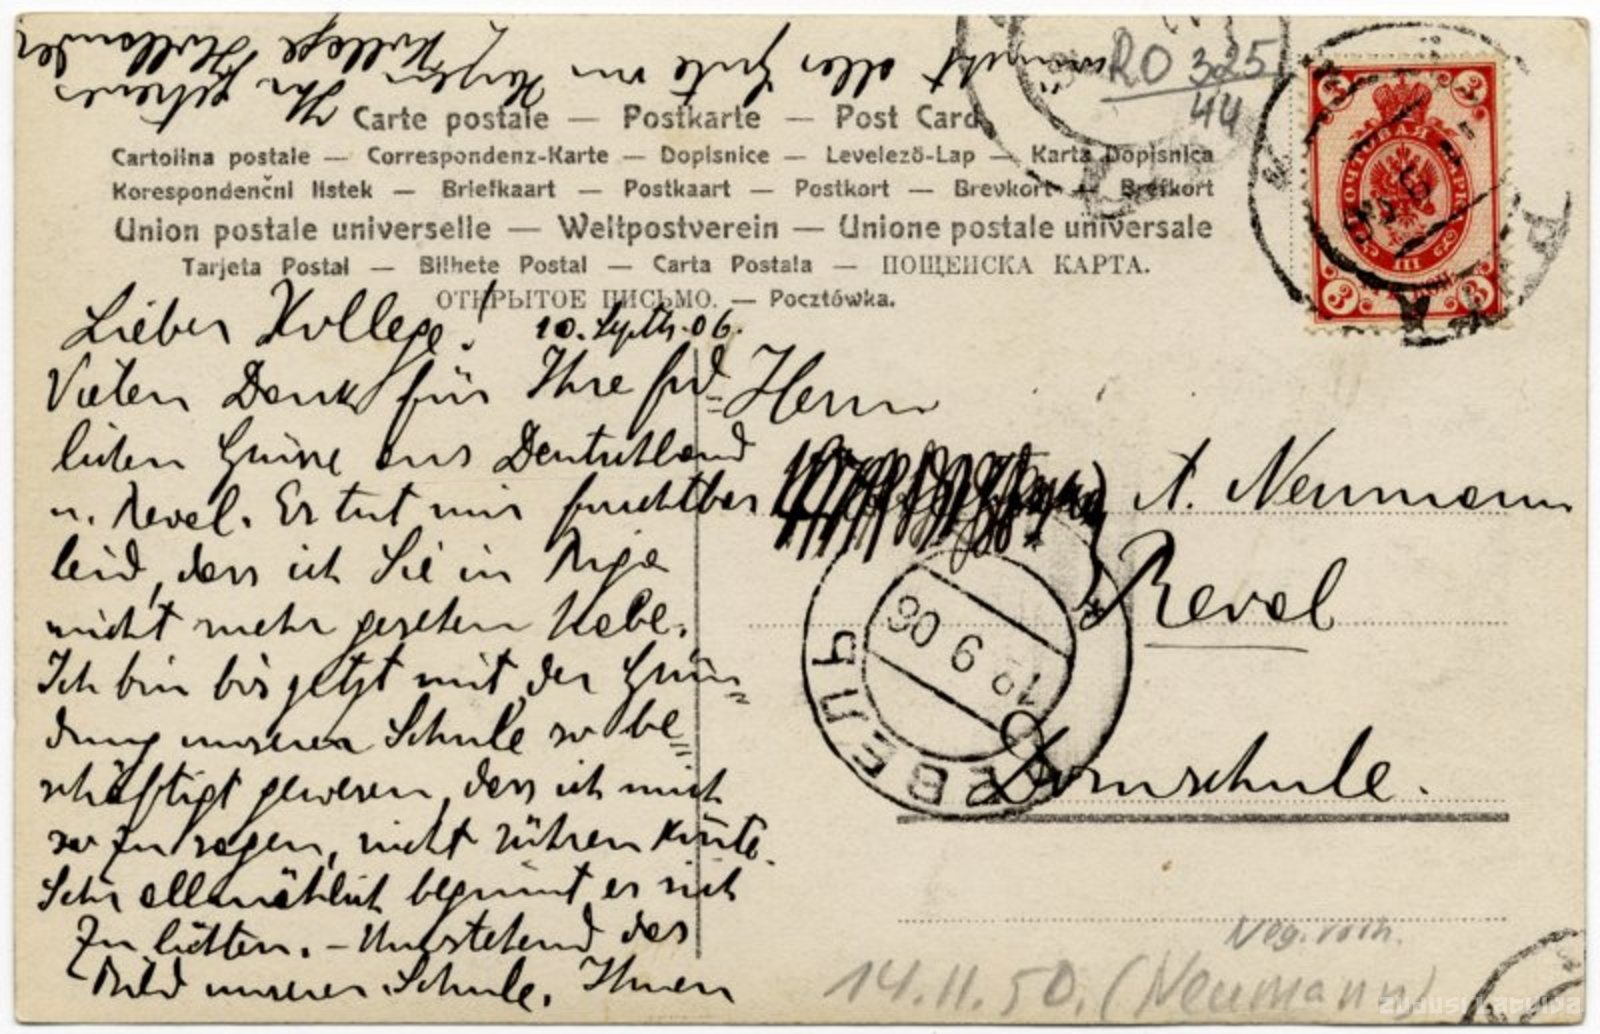 Carte postale — Postkarte — Post Card
Cartolina postale — Correspondenz-Karte — Dopisnice — Levelező-Lap — Karta Dopisnica
Korespondenční listek — Briefkaart — Postkaart — Postkort — Brevkort — Brefkort
Union postale universelle — Weltpostverein — Unione postale universale
Tarjeta Postal — Bilhete Postal — Carta Postala — ПОЩЕНСКА КАРТА.
ОТКРЫТОЕ ПИСЬМО. — Pocztówka.
RO 325
44
ПОЧТОВАЯ МАРКА
3 3 3 3
III
Lieber Kollege! 10. Septb. 06.
Vielen Dank für Ihre frd=
lichen Grüsse aus Deutschland
u. Reval. Es tut mir furchtbar
leid, dass ich Sie in Riga
nicht mehr gesehen habe.
Ich bin bis jetzt mit der Grün=
dung unserer Schule so be=
schäftigt gewesen, dass ich mich
so zu sagen, nicht rühren kunte.
Sehr allmählich beginnt es sich
zu lichten. — Umstehend das
Bild unserer Schule. Ihnen
wünscht alles Gute von Herzen Ihr getreues
Kollege Hollander
Herrn
A. Neumann
Reval
Domschule.
РЕВЕЛЬ
9 06
Neg. vorh.
14.11.50. (Neumann)
ZUDUSILATVIJA